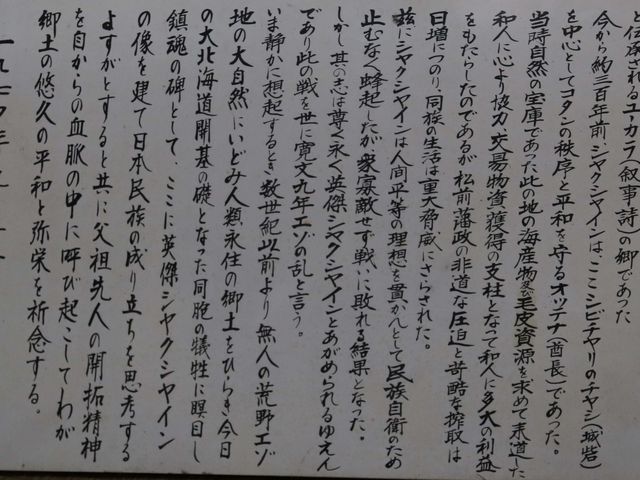 伝承されるユーカラ(叙事詩)の郷であった
今から約三百年前、シャクシャインは、ここシビチャリのチャシ(城砦)
を中心としてコタンの秩序と平和を守るオッテナ(酋長)であった。
当時自然の宝庫であった此の地の海産物及び毛皮資源を求めて来道した
和人に心より協力、交易物資獲得の支柱となって和人に多大の利益
をもたらしたのであるが松前藩政の非道な圧迫と苛酷な搾取は
日増につのり、同族の生活は重大脅威にさらされた。
茲にシャクシャインは人間平等の理想を貫かんとして民族自衛のため
止むなく蜂起したが衆寡敵せず戦いに敗れる結果となった。
しかし其の志は尊く永く英傑シャクシャインとあがめられるゆえん
であり此の戦を世に寛文九年エゾの乱と言う。
いま静かに想起するとき数世紀以前より無人の荒野エゾ
地の大自然にいどみ人類永住の郷土をひらき今日
の大北海道開基の礎となった同胞の犠牲に瞑目し
鎮魂の碑として、ここに英傑シャクシャイン
の像を建て日本民族の成り立ちを思考する
よすがとすると共に父祖先人の開拓精神
を自からの血脈の中に呼び起こしてわが
郷土の悠久の平和と弥栄を祈念する。